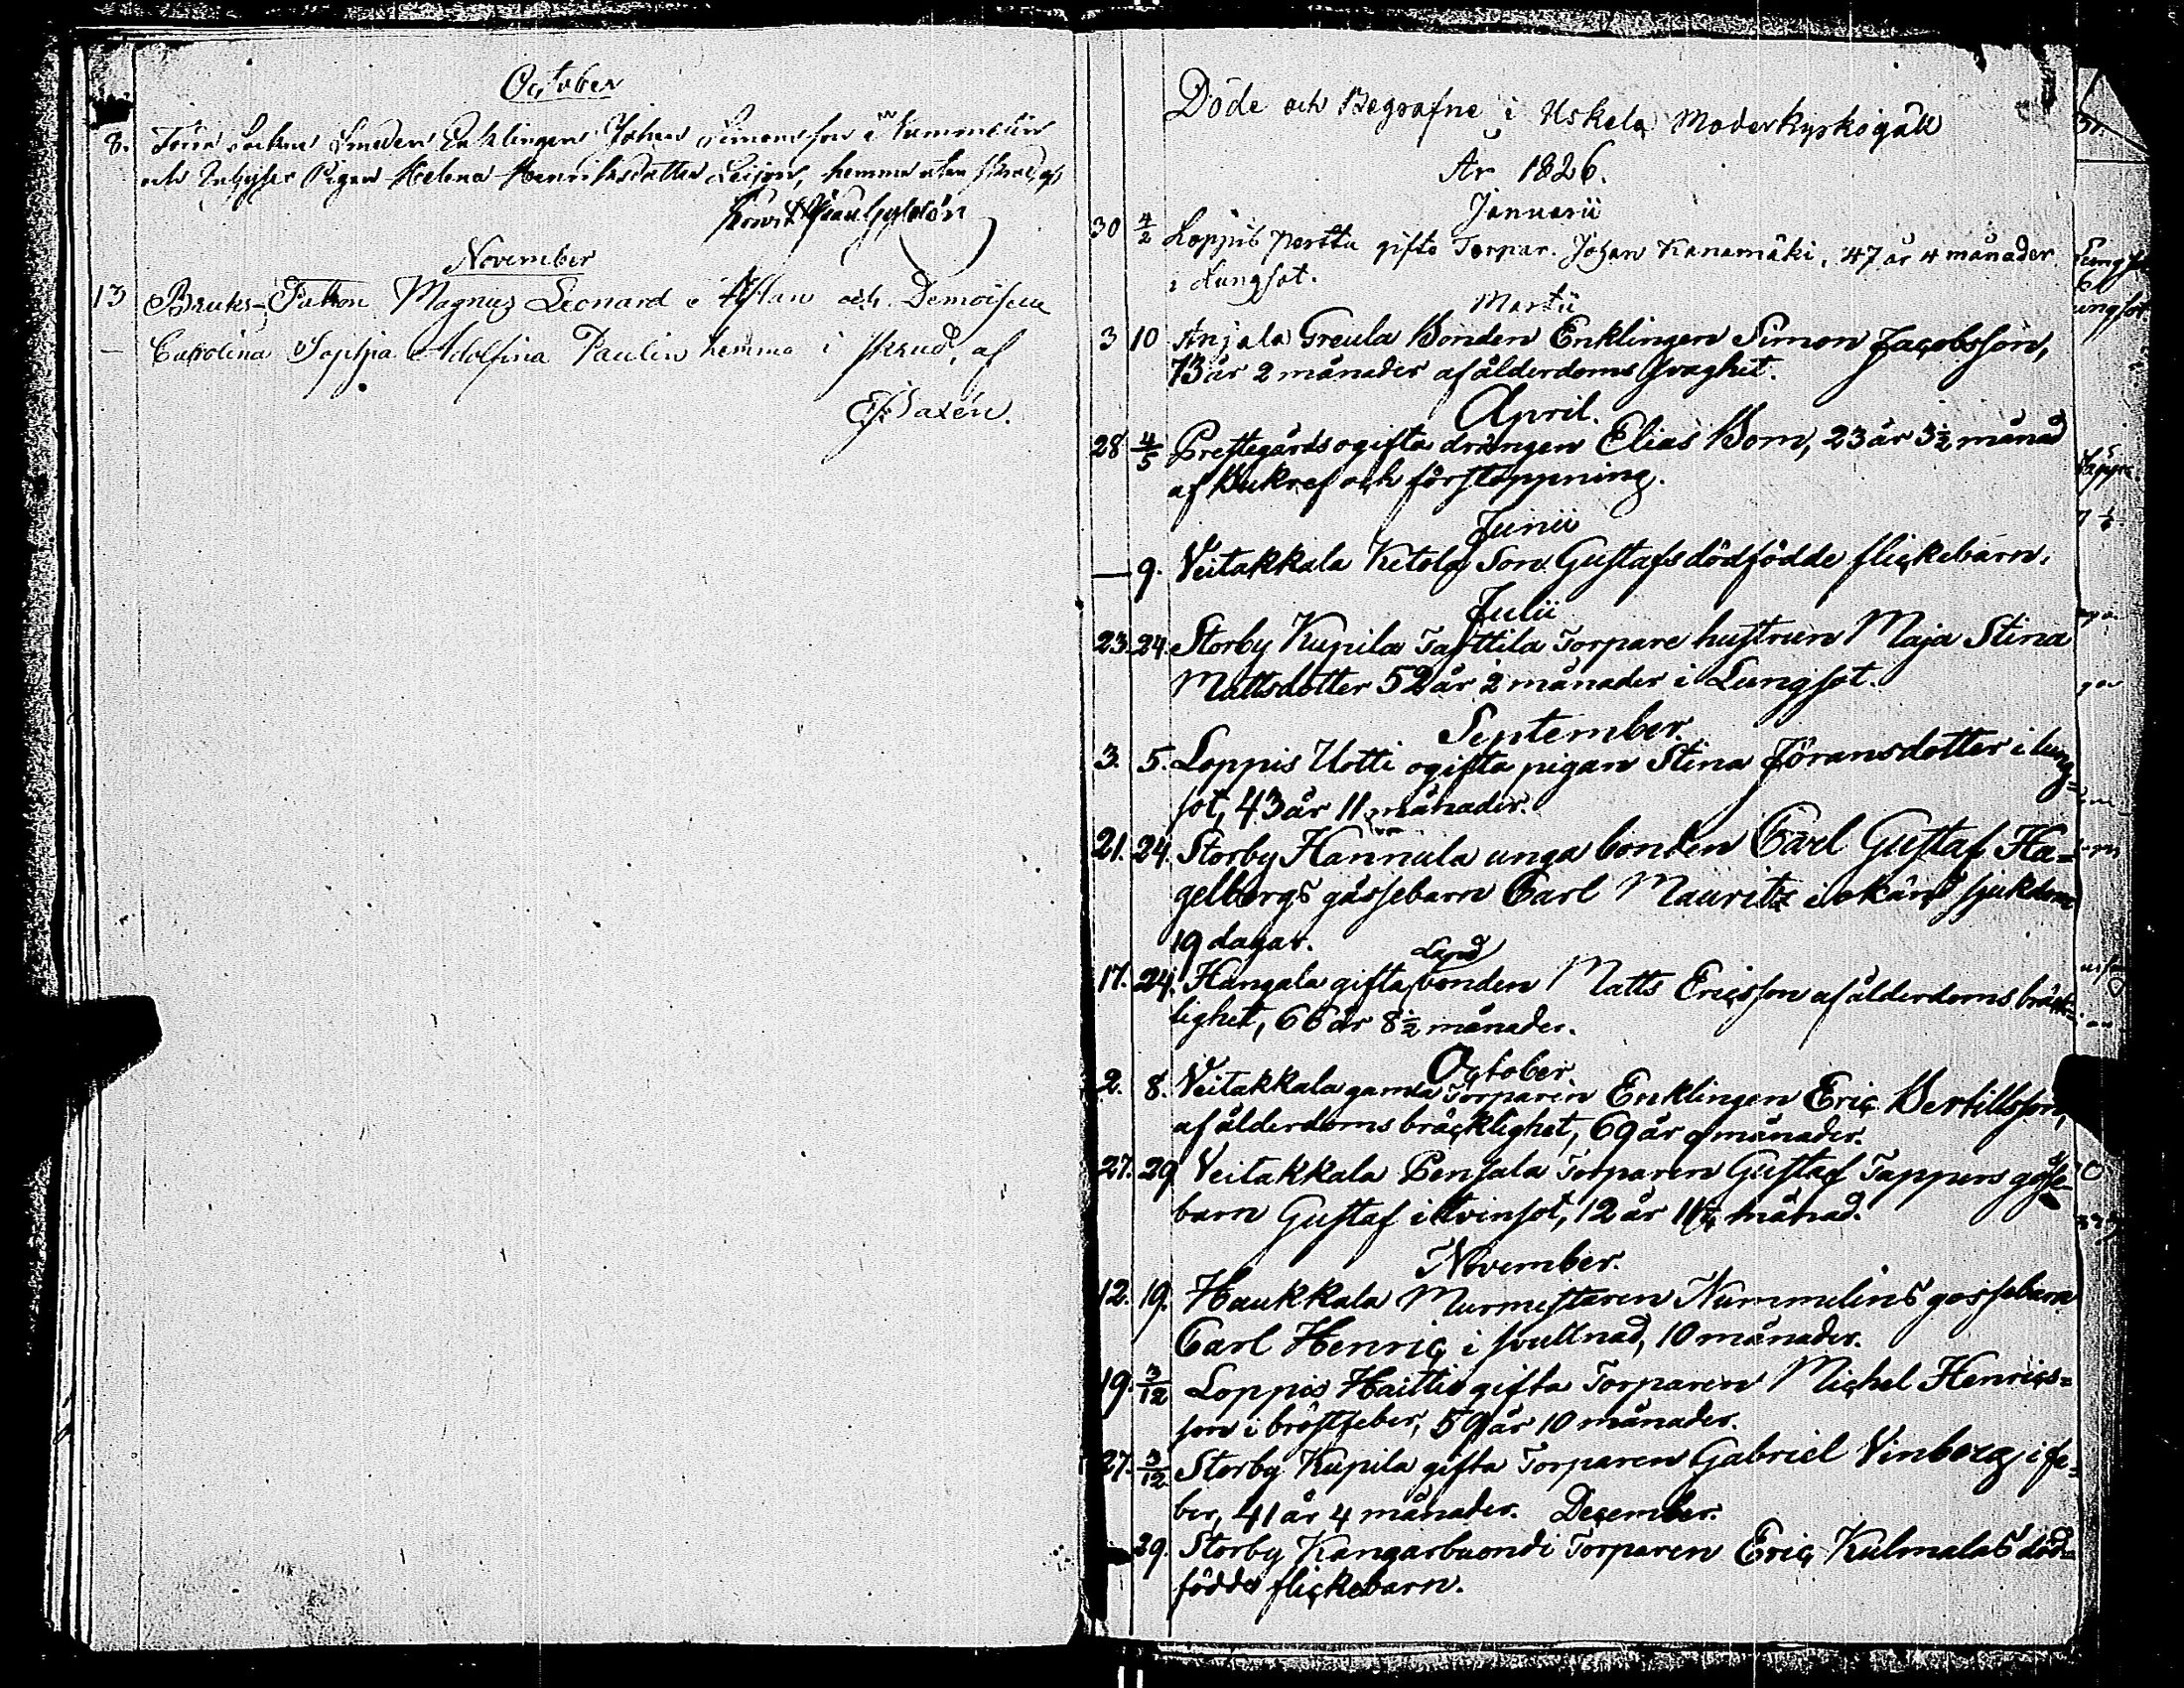 October
8. Socken Smeden Enklingen Johan Simonsson i
och Inhyses Pigan Helena Henricsdotter Leijon, hemma utan skrud, af
November
13 Bruks-Patron Magnus Leonard och Demoiselle
Carolina Sophia Adolfina Paulin hemma i skrud, af
Döde och Begrafne i Uskela Moderkyrkogäll
År 1826.
Januarii
30 4/2 Loppis Perttu gifte Torpar. Johan Kanamäki, 47 år 4 månader
i Lungsot.
Martii
3 10 Anjala Greula Bonden Enklingen Simon Jacobsson,
73 år 2 månader af ålderdoms svaghet.
April.
28 4/5 Prestegårds ogifta drängen Elias Bom, 23 år 3½ månad
af Bukref och förstoppning.
Junii
— 9. Veitakkala Ketola Son Gustafs dödfödde flickebarn.
Julii
23. 24. Storby Kupila Tarttila Torpare hustrun Maja Stina
Mattsdotter 52 år 2 månader i Lungsot.
September.
3. 5. Loppis Uotti ogifta pigan Stina Jöransdotter i lung=
sot, 43 år 11 månader.
21. 24. Storby Hannula unga bonden Carl Gustaf Ha=
gelbergs gossebarn Carl Mauritz i okänd sjukdom
19 dagar.
17. 24. Hangala gifta Land bonden Matts Ericsson af ålderdoms bräck=
lighet, 66 år 8½ månader.
October.
2. 8. Veitakkala gamla Torparen Enklingen Eric Bertillsson,
af ålderdoms bräcklighet, 69 år 9 månader.
27. 29 Veitakkala Pensala Torparen Gustaf Tappers gosse-
barn Gustaf i tvinsot, 12 år månad.
November.
12. 19. Haukkala Murmestaren Nummelins gossebarn
Carl Henric i svullnad, 10 månader.
19. 3/12 Loppis Haitti gifta Torparen Michel Henrics=
son i bröstfeber, 59 år 10 månader.
27. 3/12 Storby Kupila gifta Torparen Gabriel Vinberg i fe=
ber, 41 år 4 månader. December.
29. Storby Torparen Eric Kulmalas död=
födde flickebarn.